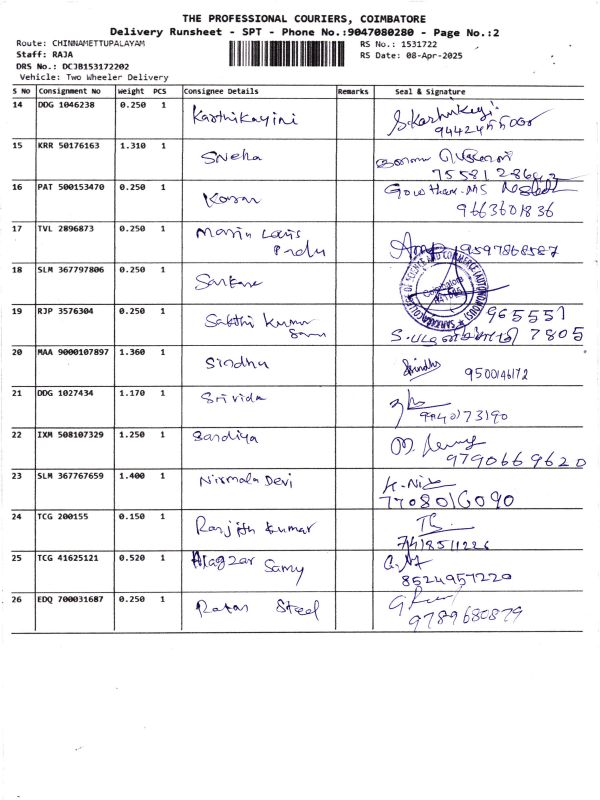 THE PROFESSIONAL COURIERS, COIMBATORE
Delivery Runsheet - SPT - Phone No.:9047080280 - Page No.:2
Route: CHINNAMETTUPALAYAM RS No.: 1531722
Staff: RAJA RS Date: 08-Apr-2025
DRS No.: DCJB153172202
Vehicle: Two Wheeler Delivery
S No Consignment No Weight PCS Consignee Details Remarks Seal & Signature
14 DDG 1046238 0.250 1 Karthikayini S.Karthikeyi
9442455000
15 KRR 50176163 1.310 1 Sneha
16 PAT 500153470 0.250 1 Gowtham.MS
9663601836
17 TVL 2896873 0.250 1 Maria Louis 9597868587
18 SLM 367797806 0.250 1 Sankara
COLLEGE OF SCIENCE AND COMMERCE (AUTONOMOUS)
Coimbatore
19 RJP 3576304 0.250 1 Sakthi Kumar 965551
7805
20 MAA 9000107897 1.360 1 Sindhu Sindhu
9500146172
21 DDG 1027434 1.170 1 Srivida
9840173190
22 IXM 508107329 1.250 1 Sandiya
9790669620
23 SLM 367767659 1.400 1 Nirmala Devi
7708016090
24 TCG 200155 0.150 1 Ranjith Kumar
7418511226
25 TCG 41625121 0.520 1 Alagzar Samy
8524957220
26 EDQ 700031687 0.250 1 Ratan Steel
9789680879